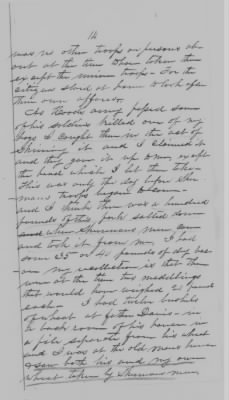 14
was no other troops or persons ab-
out at the time when taken then
except the union troops - For the
citizens staid at home to look after
their own affairs.
As Hoods army passed some
of his soldiers killed one of my
hogs I caught them in the act of
skinning it and I claimed it
and they gave it up to me, except
the head which I let them take
This was only the day before Sher-
mans troops began to come
and I think there was a hundred
pounds of this pork salted down
and when Shermans men came
and took it from me. I had
some 35 or 40 pounds of dry bac-
on my recollection is that there
were at the time two middlings
that would have weighed 20 pounds
each - I had twelve bushels
of wheat at father Davis - in
a back room of his house in
a pile separate from his wheat
and I was at the old mans house
& saw both his and my own
wheat taken by Shermans men